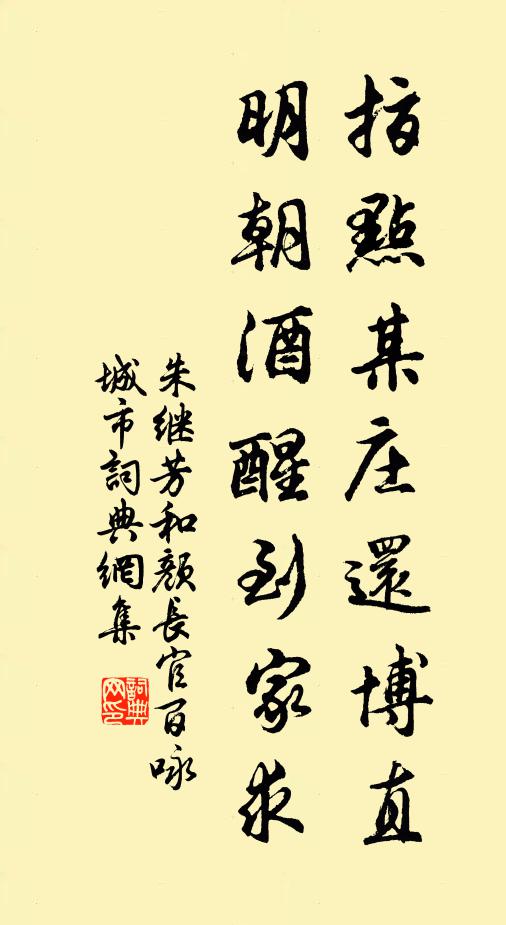 指點某庄還博直
明朝酒醒到家求
朱继芳和顏長官百咏
城市詞典網集
詞典网印